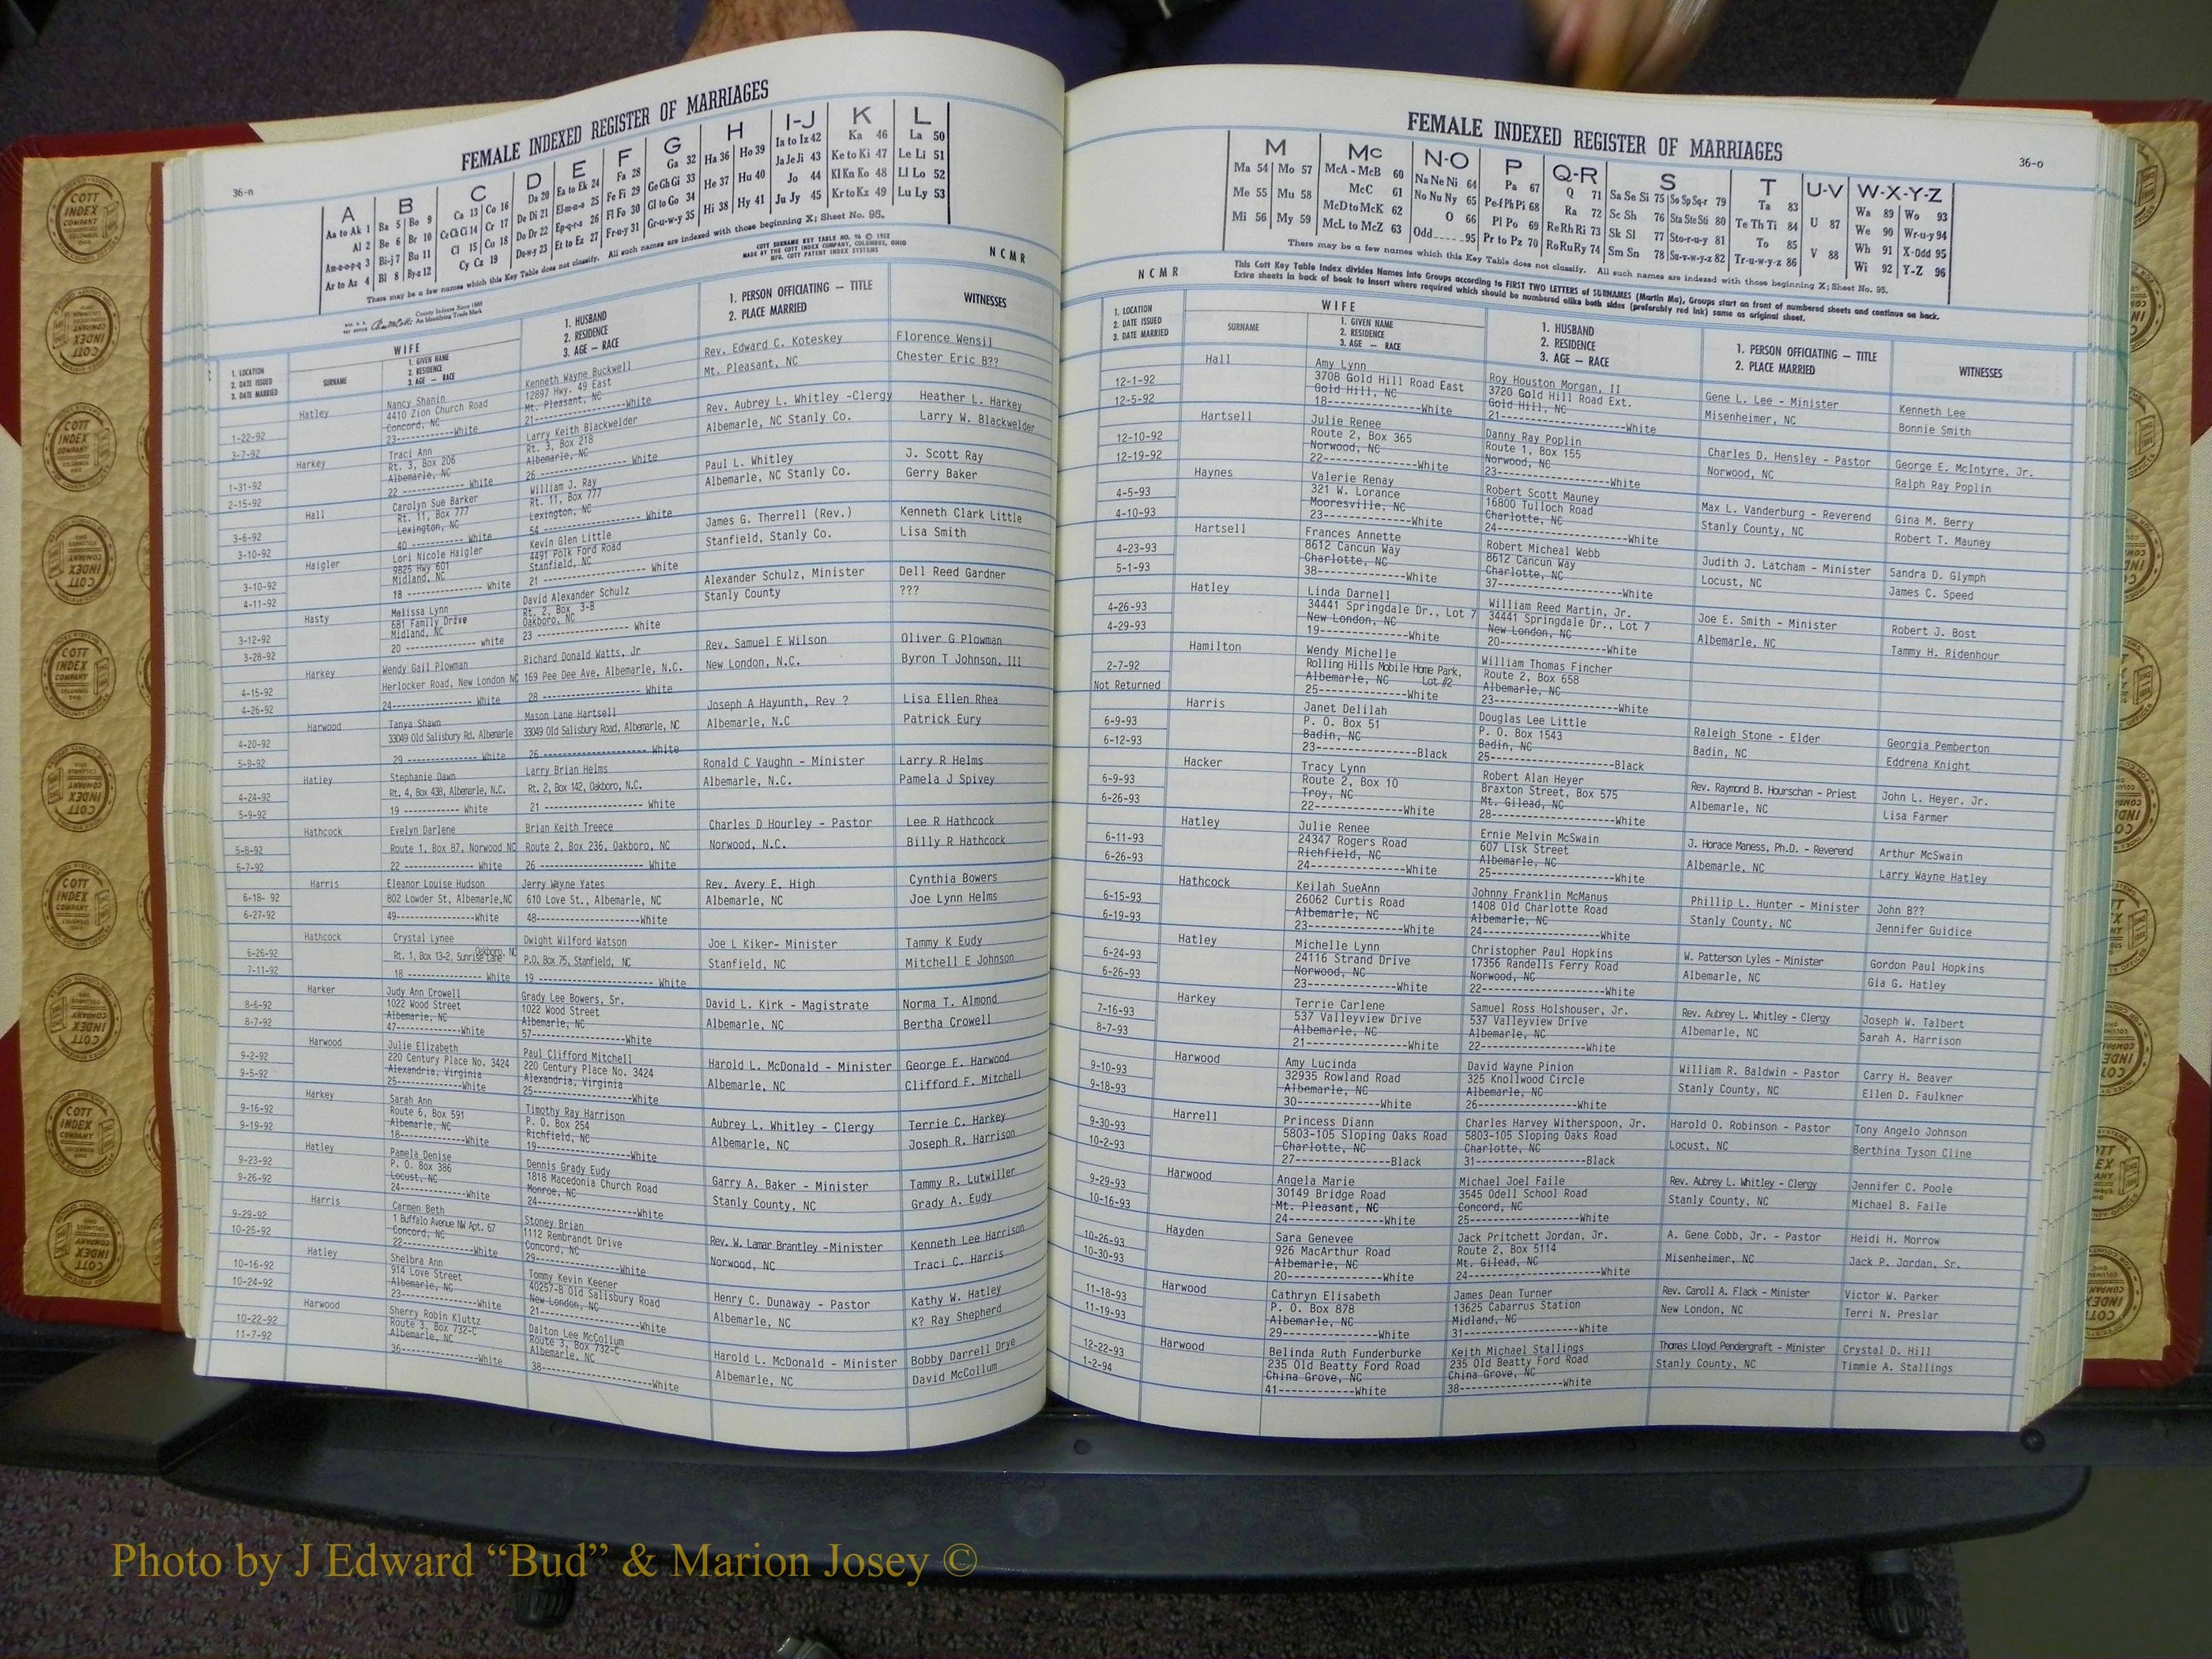 FEMALE INDEXED REGISTER OF MARRIAGES
36-n
A B C D E F G H I-J K L
Aa to Ak 1 Ba 5 Bo 9 Ca 13 Co 16 Da 20 Ea to Ek 24 Fa 28 Ga 32 Ha 36 Ho 39 Ia to Iz 42 Ka 46 La 50
Al 2 Be 6 Br 10 Ce Ch Ci 14 Cr 17 De Di 21 El-m-n-o 25 Fe Fi 29 Ge Gh Gi 33 He 37 Hu 40 Ja Je Ji 43 Ke to Ki 47 Le Li 51
Am-n-o-p-q 3 Bi-j 7 Bu 11 Cl 15 Cu 18 Do Dr 22 Ep-q-r-s 26 Fl Fo 30 Gl to Go 34 Hi 38 Hy 41 Jo 44 Kl Kn Ko 48 Ll Lo 52
Ar to Az 4 Bl 8 By-z 12 Cy Cz 19 Du-w-y 23 Et to Ez 27 Fr-u-y 31 Gr-u-w-y 35 Ju Jy 45 Kr to Kz 49 Lu Ly 53
There may be a few names which this Key Table does not classify. All such names are indexed with those beginning X; Sheet No. 95.
County Indexes Since 1888
An Identifying Trade Mark
COTT SURNAME KEY TABLE NO. 96 © 1952
MADE BY THE COTT INDEX COMPANY, COLUMBUS, OHIO
MFG. COTT PATENT INDEX SYSTEMS
NCMR
1. LOCATION
2. DATE ISSUED
3. DATE MARRIED
WIFE
SURNAME
1. GIVEN NAME
2. RESIDENCE
3. AGE — RACE
1. HUSBAND
2. RESIDENCE
3. AGE — RACE
1. PERSON OFFICIATING — TITLE
2. PLACE MARRIED
WITNESSES
Hatley Nancy Shanin Kenneth Wayne Buckwell Rev. Edward C. Koteskey Florence Wensil
4410 Zion Church Road 12897 Hwy. 49 East Mt. Pleasant, NC Chester Eric B??
1-22-92 Concord, NC Mt. Pleasant, NC
3-7-92 23------------White 21------------White
Harkey Traci Ann Larry Keith Blackwelder Rev. Aubrey L. Whitley -Clergy Heather L. Harkey
Rt. 3, Box 206 Rt. 3, Box 218 Albemarle, NC Stanly Co. Larry W. Blackwelder
1-31-92 Albemarle, NC Albemarle, NC
2-15-92 22 ------------ White 26 ------------ White
Hall Carolyn Sue Barker William J. Ray Paul L. Whitley J. Scott Ray
Rt. 11, Box 777 Rt. 11, Box 777 Albemarle, NC Stanly Co. Gerry Baker
3-6-92 Lexington, NC Lexington, NC
3-10-92 40 ------------ White 54 ------------ White
Haigler Lori Nicole Haigler Kevin Glen Little James G. Therrell (Rev.) Kenneth Clark Little
9825 Hwy 601 4491 Polk Ford Road Stanfield, Stanly Co. Lisa Smith
3-10-92 Midland, NC Stanfield, NC
4-11-92 18 ------------ White 21 ------------ White
Hasty Melissa Lynn David Alexander Schulz Alexander Schulz, Minister Dell Reed Gardner
681 Family Drive Rt. 2, Box 3-B Stanly County ???
3-12-92 Midland, NC Oakboro, NC
3-28-92 20 ------------ white 23 ------------ White
Harkey Wendy Gail Plowman Richard Donald Watts, Jr Rev. Samuel E Wilson Oliver G Plowman
4-15-92 Herlocker Road, New London NC 169 Pee Dee Ave, Albemarle, N.C. New London, N.C. Byron T Johnson, III
4-26-92 24------------ White 28 ------------ White
Harwood Tanya Shawn Mason Lane Hartsell Joseph A Hayunth, Rev ? Lisa Ellen Rhea
4-20-92 33049 Old Salisbury Rd. Albemarle 33049 Old Salisbury Road, Albemarle, NC Albemarle, N.C Patrick Eury
5-9-92 29 ------------ White 26 ------------ White
Hatley Stephanie Dawn Larry Brian Helms Ronald C Vaughn - Minister Larry R Helms
4-24-92 Rt. 4, Box 438, Albemarle, N.C. Rt. 2, Box 142, Oakboro, N.C. Albemarle, N.C. Pamela J Spivey
5-9-92 19 ------------ White 21 ------------ White
Hathcock Evelyn Darlene Brian Keith Treece Charles D Hourley - Pastor Lee R Hathcock
5-8-92 Route 1, Box 87, Norwood NC Route 2, Box 236, Oakboro, NC Norwood, N.C. Billy R Hathcock
6-7-92 22 ------------ White 26 ------------ White
Harris Eleanor Louise Hudson Jerry Wayne Yates Rev. Avery E. High Cynthia Bowers
6-18- 92 802 Lowder St, Albemarle,NC 610 Love St., Albemarle, NC Albemarle, NC Joe Lynn Helms
6-27-92 49------------White 48------------White
Hathcock Crystal Lynee Dwight Wilford Watson Joe L Kiker- Minister Tammy K Eudy
6-26-92 Rt. 1, Box 13-2, Sunrise Lane, Oakboro, NC P.O. Box 75, Stanfield, NC Stanfield, NC Mitchell E Johnson
7-11-92 18 ------------ White 19 ------------ White
Harker Judy Ann Crowell Grady Lee Bowers, Sr. David L. Kirk - Magistrate Norma T. Almond
8-6-92 1022 Wood Street 1022 Wood Street Albemarle, NC Bertha Crowell
8-7-92 Albemarle, NC Albemarle, NC
47------------White 57------------White
Harwood Julie Elizabeth Paul Clifford Mitchell Harold L. McDonald - Minister George E. Harwood
9-2-92 220 Century Place No. 3424 220 Century Place No. 3424 Albemarle, NC Clifford F. Mitchell
9-5-92 Alexandria, Virginia Alexandria, Virginia
25------------White 25------------White
Harkey Sarah Ann Timothy Ray Harrison Aubrey L. Whitley - Clergy Terrie C. Harkey
9-16-92 Route 6, Box 591 P. O. Box 254 Albemarle, NC Joseph R. Harrison
9-19-92 Albemarle, NC Richfield, NC
18------------White 19------------White
Hatley Pamela Denise Dennis Grady Eudy Garry A. Baker - Minister Tammy R. Lutwiller
9-23-92 P. O. Box 386 1818 Macedonia Church Road Stanly County, NC Grady A. Eudy
9-26-92 Locust, NC Monroe, NC
24------------White 24------------White
Harris Carmen Beth Stoney Brian Rev. W. Lamar Brantley -Minister Kenneth Lee Harrison
9-29-92 1 Buffalo Avenue NW Apt. 67 1112 Rembrandt Drive Norwood, NC Traci C. Harris
10-25-92 Concord, NC Concord, NC
22------------White 29------------White
Hatley Shelbra Ann Tommy Kevin Keener Henry C. Dunaway - Pastor Kathy W. Hatley
10-16-92 914 Love Street 40257-B Old Salisbury Road Albemarle, NC K? Ray Shepherd
10-24-92 Albemarle, NC New London, NC
23------------White 21------------White
Harwood Sherry Robin Kluttz Dalton Lee McCollum Harold L. McDonald - Minister Bobby Darrell Drye
10-22-92 Route 3, Box 732-C Route 3, Box 732-C Albemarle, NC David McCollum
11-7-92 Albemarle, NC Albemarle, NC
36------------White 38------------White
FEMALE INDEXED REGISTER OF MARRIAGES
36-o
M Mc N-O P Q-R S T U-V W-X-Y-Z
Ma 54 Mo 57 McA - McB 60 Na Ne Ni 64 Pa 67 Q 71 Sa Se Si 75 So Sp Sq-r 79 Ta 83 U 87 Wa 89 Wo 93
Me 55 Mu 58 McC 61 No Nu Ny 65 Pe-f Ph Pi 68 Ra 72 Sc Sh 76 Sta Ste Sti 80 Te Th Ti 84 V 88 We 90 Wr-u-y 94
Mi 56 My 59 McD to McK 62 O 66 Pl Po 69 Re Rh Ri 73 Sk Sl 77 Sto-r-u-y 81 To 85 Wh 91 X-Odd 95
McL to McZ 63 Odd 95 Pr to Pz 70 Ro Ru Ry 74 Sm Sn 78 Su-v-w-y-z 82 Tr-u-w-y-z 86 Wi 92 Y-Z 96
There may be a few names which this Key Table does not classify. All such names are indexed with those beginning X; Sheet No. 95.
NCMR
This Cott Key Table Index divides Names into Groups according to FIRST TWO LETTERS of SURNAMES (Martin Ma), Groups start on front of numbered sheets and continue on back.
Extra sheets in back of book to insert where required which should be numbered alike both sides (preferably red ink) same as original sheet.
1. LOCATION
2. DATE ISSUED
3. DATE MARRIED
WIFE
SURNAME
1. GIVEN NAME
2. RESIDENCE
3. AGE — RACE
1. HUSBAND
2. RESIDENCE
3. AGE — RACE
1. PERSON OFFICIATING — TITLE
2. PLACE MARRIED
WITNESSES
Hall Amy Lynn Roy Houston Morgan, II Gene L. Lee - Minister Kenneth Lee
12-1-92 3708 Gold Hill Road East 3720 Gold Hill Road Ext. Misenheimer, NC Bonnie Smith
12-5-92 Gold Hill, NC Gold Hill, NC
18------------White 21------------White
Hartsell Julie Renee Danny Ray Poplin Charles D. Hensley - Pastor George E. McIntyre, Jr.
12-10-92 Route 2, Box 365 Route 1, Box 155 Norwood, NC Ralph Ray Poplin
12-19-92 Norwood, NC Norwood, NC
22------------White 23------------White
Haynes Valerie Renay Robert Scott Mauney Max L. Vanderburg - Reverend Gina M. Berry
4-5-93 321 W. Lorance 16800 Tulloch Road Stanly County, NC Robert T. Mauney
4-10-93 Mooresville, NC Charlotte, NC
23------------White 24------------White
Hartsell Frances Annette Robert Micheal Webb Judith J. Latcham - Minister Sandra D. Glymph
4-23-93 8612 Cancun Way 8612 Cancun Way Locust, NC James C. Speed
5-1-93 Charlotte, NC Charlotte, NC
38------------White 37------------White
Hatley Linda Darnell William Reed Martin, Jr. Joe E. Smith - Minister Robert J. Bost
4-26-93 34441 Springdale Dr., Lot 7 34441 Springdale Dr., Lot 7 Albemarle, NC Tammy H. Ridenhour
4-29-93 New London, NC New London, NC
19------------White 20------------White
Hamilton Wendy Michelle William Thomas Fincher
2-7-92 Rolling Hills Mobile Home Park, Lot #2 Route 2, Box 658
Not Returned Albemarle, NC Albemarle, NC
25------------White 23------------White
Harris Janet Delilah Douglas Lee Little Raleigh Stone - Elder Georgia Pemberton
6-9-93 P. O. Box 51 P. O. Box 1543 Badin, NC Eddrena Knight
6-12-93 Badin, NC Badin, NC
23------------Black 25------------Black
Hacker Tracy Lynn Robert Alan Heyer Rev. Raymond B. Hourschan - Priest John L. Heyer, Jr.
6-9-93 Route 2, Box 10 Braxton Street, Box 575 Albemarle, NC Lisa Farmer
6-26-93 Troy, NC Mt. Gilead, NC
22------------White 28------------White
Hatley Julie Renee Ernie Melvin McSwain J. Horace Maness, Ph.D. - Reverend Arthur McSwain
6-11-93 24347 Rogers Road 607 Lisk Street Albemarle, NC Larry Wayne Hatley
6-26-93 Richfield, NC Albemarle, NC
24------------White 25------------White
Hathcock Keilah SueAnn Johnny Franklin McManus Phillip L. Hunter - Minister John B??
6-15-93 26062 Curtis Road 1408 Old Charlotte Road Stanly County, NC Jennifer Guidice
6-19-93 Albemarle, NC Albemarle, NC
23------------White 24------------White
Hatley Michelle Lynn Christopher Paul Hopkins W. Patterson Lyles - Minister Gordon Paul Hopkins
6-24-93 24116 Strand Drive 17356 Randells Ferry Road Albemarle, NC Gia G. Hatley
6-26-93 Norwood, NC Norwood, NC
23------------White 22------------White
Harkey Terrie Carlene Samuel Ross Holshouser, Jr. Rev. Aubrey L. Whitley - Clergy Joseph W. Talbert
7-16-93 537 Valleyview Drive 537 Valleyview Drive Albemarle, NC Sarah A. Harrison
8-7-93 Albemarle, NC Albemarle, NC
21------------White 22------------White
Harwood Amy Lucinda David Wayne Pinion William R. Baldwin - Pastor Carry H. Beaver
9-10-93 32935 Rowland Road 325 Knollwood Circle Stanly County, NC Ellen D. Faulkner
9-18-93 Albemarle, NC Albemarle, NC
30------------White 26------------White
Harrell Princess Diann Charles Harvey Witherspoon, Jr. Harold O. Robinson - Pastor Tony Angelo Johnson
9-30-93 5803-105 Sloping Oaks Road 5803-105 Sloping Oaks Road Locust, NC Berthina Tyson Cline
10-2-93 Charlotte, NC Charlotte, NC
27------------Black 31------------Black
Harwood Angela Marie Michael Joel Faile Rev. Aubrey L. Whitley - Clergy Jennifer C. Poole
9-29-93 30149 Bridge Road 3545 Odell School Road Stanly County, NC Michael B. Faile
10-16-93 Mt. Pleasant, NC Concord, NC
24------------White 25------------White
Hayden Sara Genevee Jack Pritchett Jordan, Jr. A. Gene Cobb, Jr. - Pastor Heidi H. Morrow
10-26-93 926 MacArthur Road Route 2, Box 5114 Misenheimer, NC Jack P. Jordan, Sr.
10-30-93 Albemarle, NC Mt. Gilead, NC
20------------White 24------------White
Harwood Cathryn Elisabeth James Dean Turner Rev. Caroll A. Flack - Minister Victor W. Parker
11-18-93 P. O. Box 878 13625 Cabarrus Station New London, NC Terri N. Preslar
11-19-93 Albemarle, NC Midland, NC
29------------White 31------------White
Harwood Belinda Ruth Funderburke Keith Michael Stallings Thomas Lloyd Pendergraft - Minister Crystal D. Hill
12-22-93 235 Old Beatty Ford Road 235 Old Beatty Ford Road Stanly County, NC Timmie A. Stallings
1-2-94 China Grove, NC China Grove, NC
41------------White 38------------White
COTT INDEX COMPANY
Photo by J Edward “Bud” & Marion Josey ©